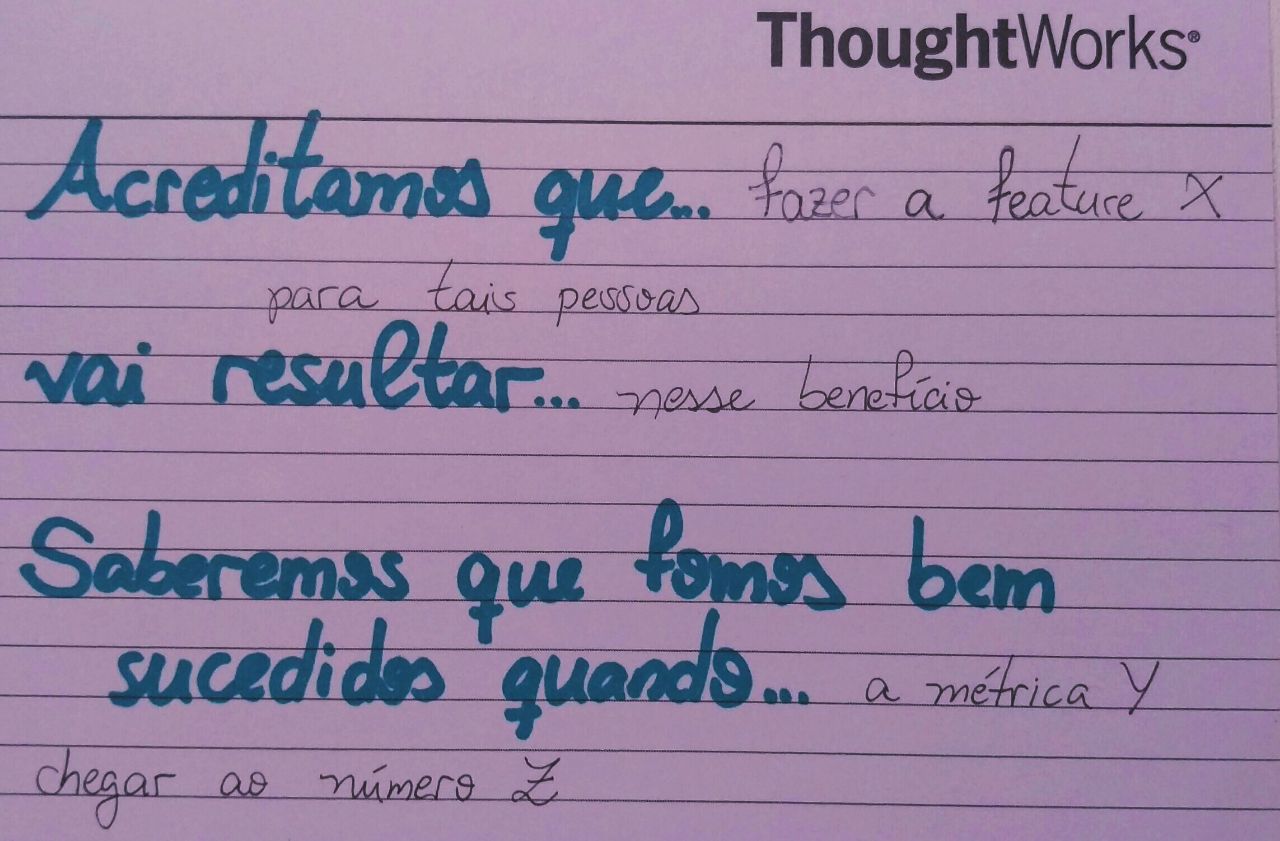 ThoughtWorks®
Acreditamos que... fazer a feature X
para tais pessoas
vai resultar... nesse benefício
Saberemos que fomos bem
sucedidos quando... a métrica Y
chegar ao número Z